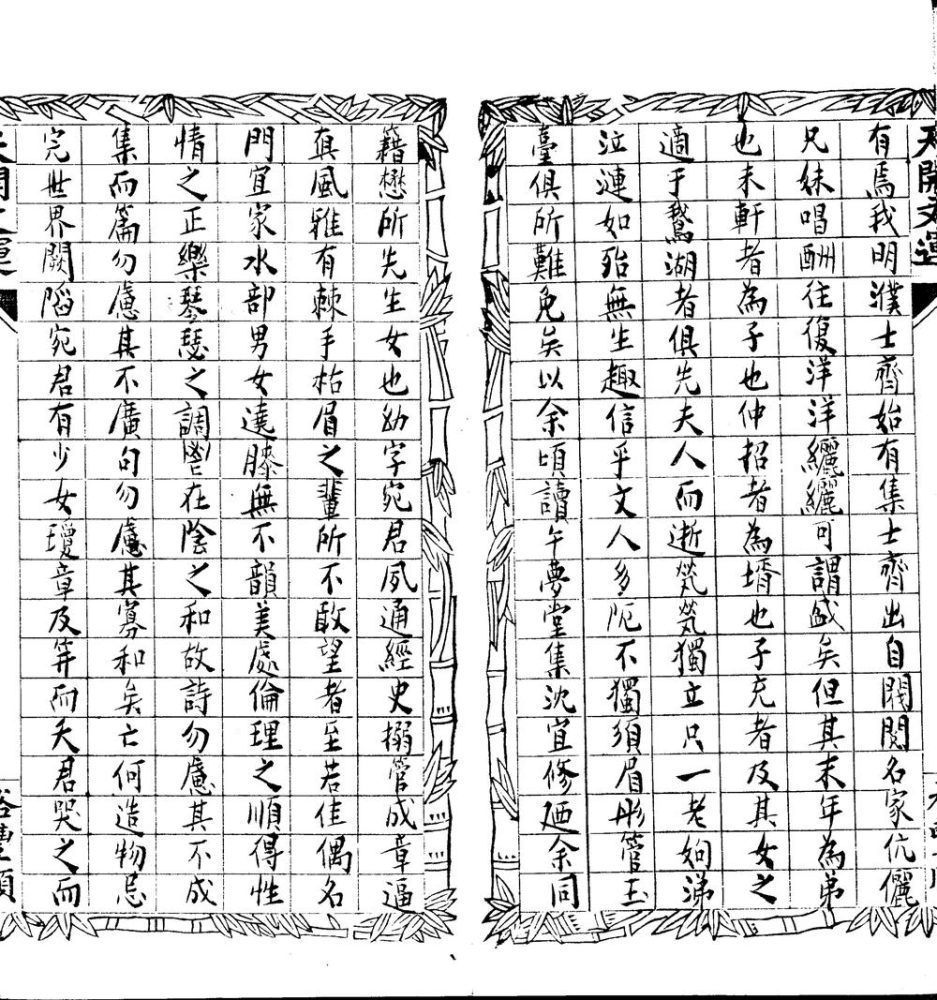 天開文運
有焉我明濮士齊始有集士齊出自閥閱名家伉儷
兄妹唱酬往復洋洋纚纚可謂盛矣但其末年為弟
也未軒者為子也仲招者為壻也子充者及其女之
適于鵞湖者俱先夫人而逝煢煢獨立只一老姁涕
泣漣如殆無生趣信乎文人多阨不獨須眉彤管玉
臺俱所難免矣以余頃讀午夢堂集沈宜修廼余同
籍懋所先生女也幼字宛君夙通經史搦管成章逼
眞風雅有棘手枯眉之輩所不敢望者至若佳偶名
門宜家水部男女遶膝無不韻美處倫理之順得性
情之正樂琴瑟之調鬯在陰之和故詩勿慮其不成
集而篇勿慮其不廣句勿慮其寡和矣亡何造物忌
完世界闕陷宛君有少女瓊章及笄而夭君哭之而